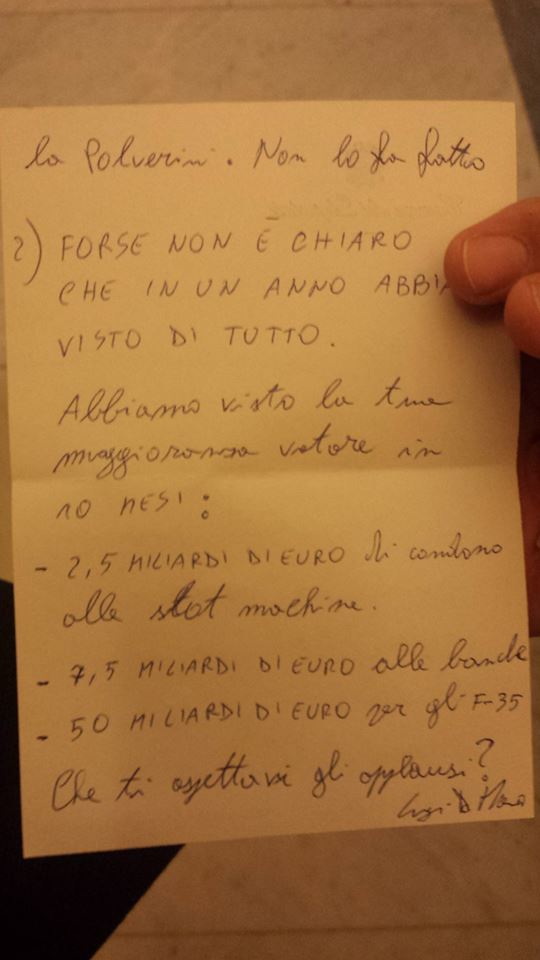 la Polverini. Non lo ha fatto
2) FORSE NON E CHIARO
CHE IN UN ANNO ABBIA
VISTO DI TUTTO.
Abbiamo visto la tua
maggioranza votare in
10 MESI:
- 2,5 MILIARDI DI EURO di condono
alle slot machine.
- 7,5 MILIARDI DI EURO alle banche
- 50 MILIARDI DI EURO per gli F-35
Che ti aspettavi gli applausi?
Luigi Di Maio